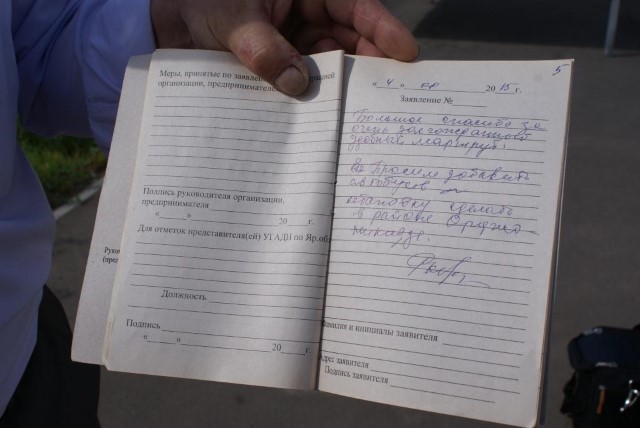 Меры, принятые по заявлен
организации, предпринимателе
Подпись руководителя организации,
предпринимателя
«____»________ 20___ г.
Для отметок представителя(ей) УГАДН по Яр.об
Должность
Подпись
«____»________ 20___ г.
Руко
(пре
5
« 4 » 20 15 г.
Заявление №
Большое спасибо за
очень долгожданный
удобный маршрут!
Просим добавить
автобусов
остановку сделать
в районе Орджо-
никидзе.
Фамилия и инициалы заявителя
Адрес заявителя
Подпись заявителя